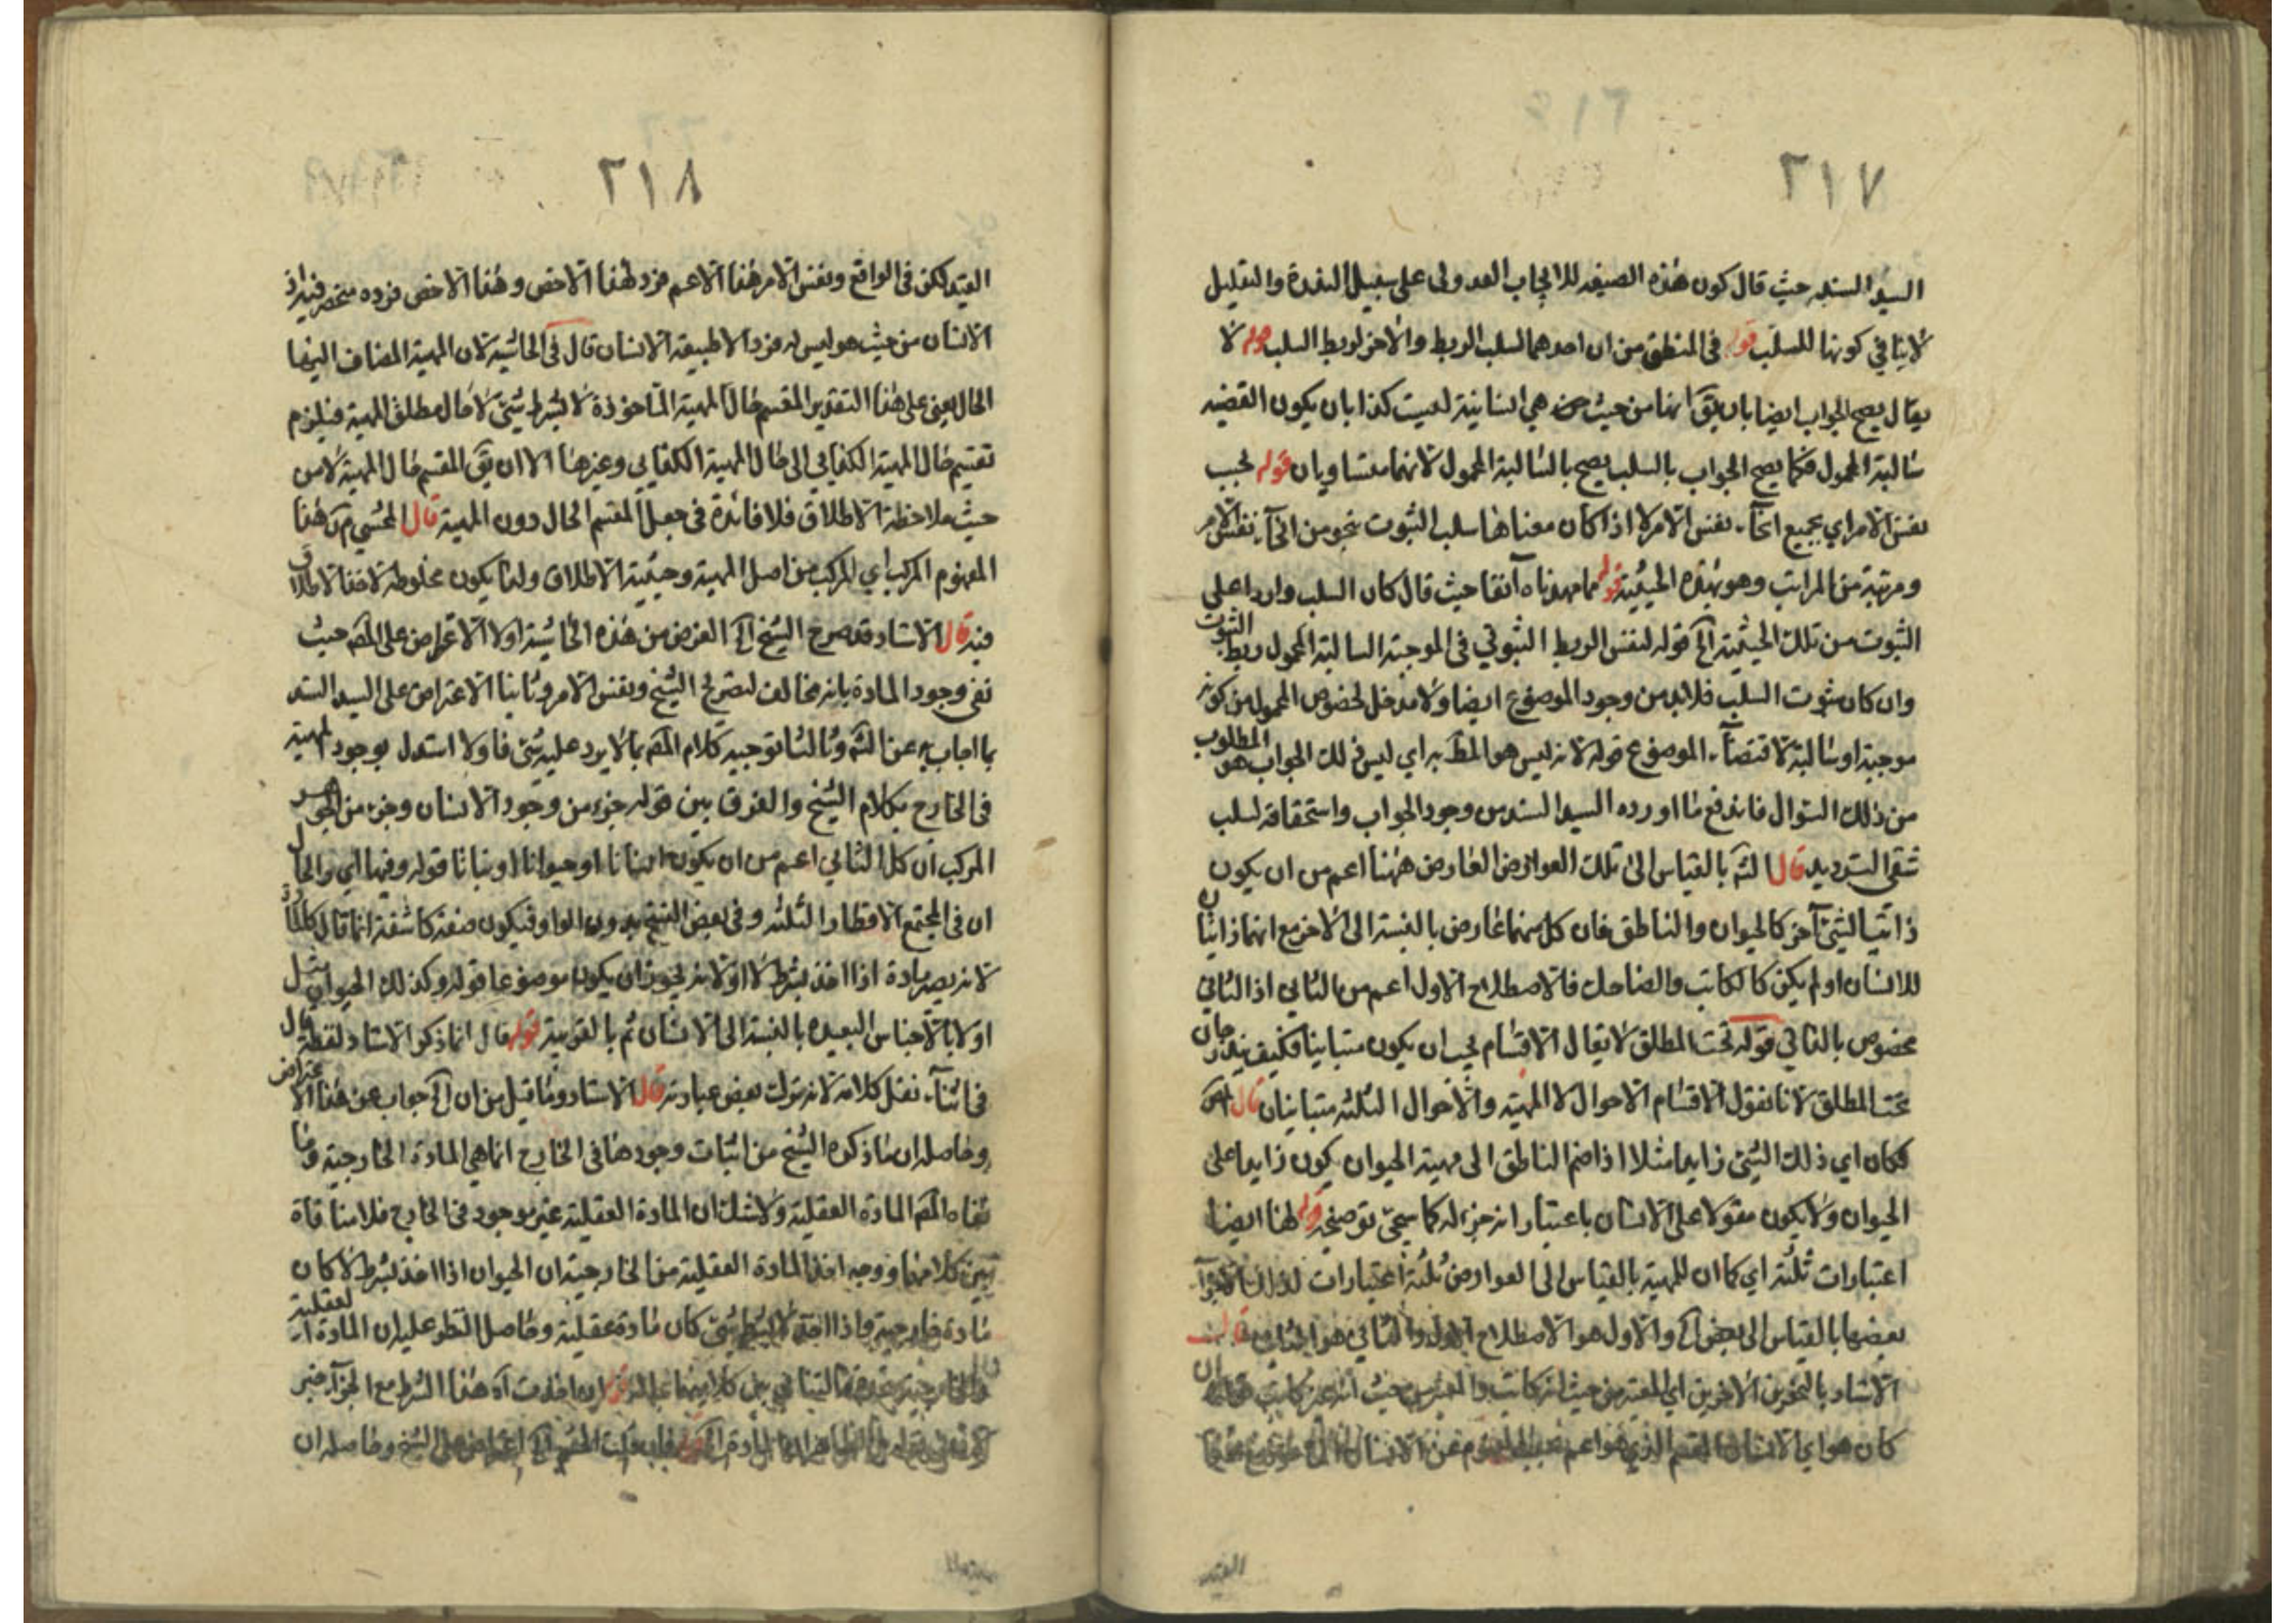 ٢١٧
السيد السند حيث قال كون هذه الصيغه للايجاب العدولى على سبيل الندرة والتقليل
لا ينافي كونها للسلب قوله فى المنطق من ان احدهما لسلب الربط والاخر لربط السلب قوله لا
يقال يصح الجواب ايضا بان يق انها من حيث هي انسانية ليست كذا بان يكون القضيه
سالبة المحمول فكما يصح الجواب بالسلب يصح بالسالبة المحمول لانهما متساويان قوله بحسب
نفس الامر اي بجميع انحآء نفس الامر لا اذا كان معناها سلب الثبوت بنحو من انحآء نفس الامر
ومرتبة من المراتب وهو بهذه الحيثية قوله مما مهدناه آنفا حيث قال كان السلب واردا على
الثبوت من تلك الحيثية الخ قوله لنفس الربط الثبوتي فى الموجبة السالبة المحمول ربط الثبوت
وان كان بثبوت السلب فلابد من وجود الموضوع ايضا ولا مدخل لخصوص المحمول من كونه
موجبة او سالبة لاقتضآء الموضوع قوله لانه ليس هو المط به اي ليس ذلك الجواب هو المطلوب
من ذلك السؤال فاندفع ما اورده السيد السند من وجود الجواب واستحقاقه لسلب
شقى الترديد قال الشه بالقياس الى تلك العوارض العارض ههنا اعم من ان يكون
ذاتيا لشيئ آخر كالحيوان والناطق فان كل منهما عارض بالنسبة الى الاخر مع انهما ذاتيان
للانسان او لم يكن كالكاتب والضاحك فالاصطلاح الاول اعم من الثانى اذ الثانى
مخصوص بالثاني قوله تحت المطلق لا يقال الاقسام يجب ان يكون متباينا فكيف يندرجان
تحت المطلق لانا نقول الاقسام الاحوال لا المهية والاحوال الثلثه متباينان قال المص
فكان اي ذلك الشيئ زايدا مثلا اذا ضم الناطق الى مهية الحيوان يكون زايدا على
الحيوان ولا يكون مقولا على الانسان باعتبار انه جزء له كما سيجئ توضيحه قوله لهنا ايضا
اعتبارات ثلثة اي كما ان للمهية بالقياس الى العوارض ثلثة اعتبارات كذلك للاجزآء
بعضها بالقياس الى بعض الخ والاول هو الاصطلاح الاول والثاني هو الثاني قال
الاستاد بالنحوين الاخيرين اي المعتبر من حيث انه كاتب والمعتبر من حيث انه غير كاتب
كان هو اي الانسان المقسم الذي هو اعم بحسب المفهوم من الانسان
القيد
٢١٨
القيد لكن فى الواقع ونفس الامر هذا الاعم فرد لهذا الاخص وهذا الاخص فرده منحصر فيه اذ
الانسان من حيث هو ليس له فرد الا طبيعة الانسان قال فى الحاشيه لان المهية المضاف اليها
الحال يعنى على هذا التقدير المقسم حال المهية الماخوذة لا بشرط شيئ لا حال مطلق المهية فيلزم
تقسيم حال المهية الكذايي الى حال المهية الكذايي وغيرها الا ان يق المقسم حال المهية لا من
حيث ملاحظة الاطلاق فلا فائدة فى جعل المقسم الحال دون المهية قال المحشي م ان هذا
المفهوم المركب اي المركب من اصل المهية وحيثية الاطلاق ولذا يكون مخلوطة لاخذ الاطلاق
فيه قال الاستاد قد صرح الشيخ الخ الغرض من هذه الحاشية اولا الاعتراض على المص حيث
نفى وجود المادة بانه مخالف لتصريح الشيخ ونفس الامر وثانيا الاعتراض على السيد السند
بما اجاب به عن الشه وثالثا توجيه كلام المص بما لا يرد عليه شيئ فاولا استدل بوجود المهية
فى الخارج بكلام الشيخ والفرق بين قوله جزء من وجود الانسان وجزء من الجوهر
المركب ان كل الثاني اعم من ان يكون انسانا او حيوانا او نباتا قوله وفيها اي والحال
ان فى المجتمع الاقطار الثلثه وفى بعض النسخ بدون الواو فيكون صفة كاشفة انما قال كالمادة
لانه يصير مادة اذا اخذ بشرط لا او لانه يجوز ان يكون موضوعا قوله وكذلك الحيوان مثل
اولا بالاجناس البعيده بالنسبة الى الانسان ثم بالقريبة قوله قال انما ذكر الاستاد لفظة قال
فى اثنآء نقل كلامه لانه ترك بعض عبارته قال الاستاد وما قيل من ان الخ جواب عن هذا الاعتراض
وحاصله ان ما ذكره الشيخ من اثبات وجودها فى الخارج انما هي المادة الخارجية وما
نفاه المص المادة العقلية ولا شك ان المادة العقلية غير موجود فى الخارج فلا منافاة
بين كلامهما ووجه اخذ المادة العقلية من الخارجية ان الحيوان اذا اخذ بشرط لا كان
مادة خارجية واذا اخذ لا بشرط شيئ كان مادة عقلية وحاصل النظر عليه ان المادة العقلية
هذا الشرط مع الجزآء خبر
اعتراض على الشيخ وحاصله ان